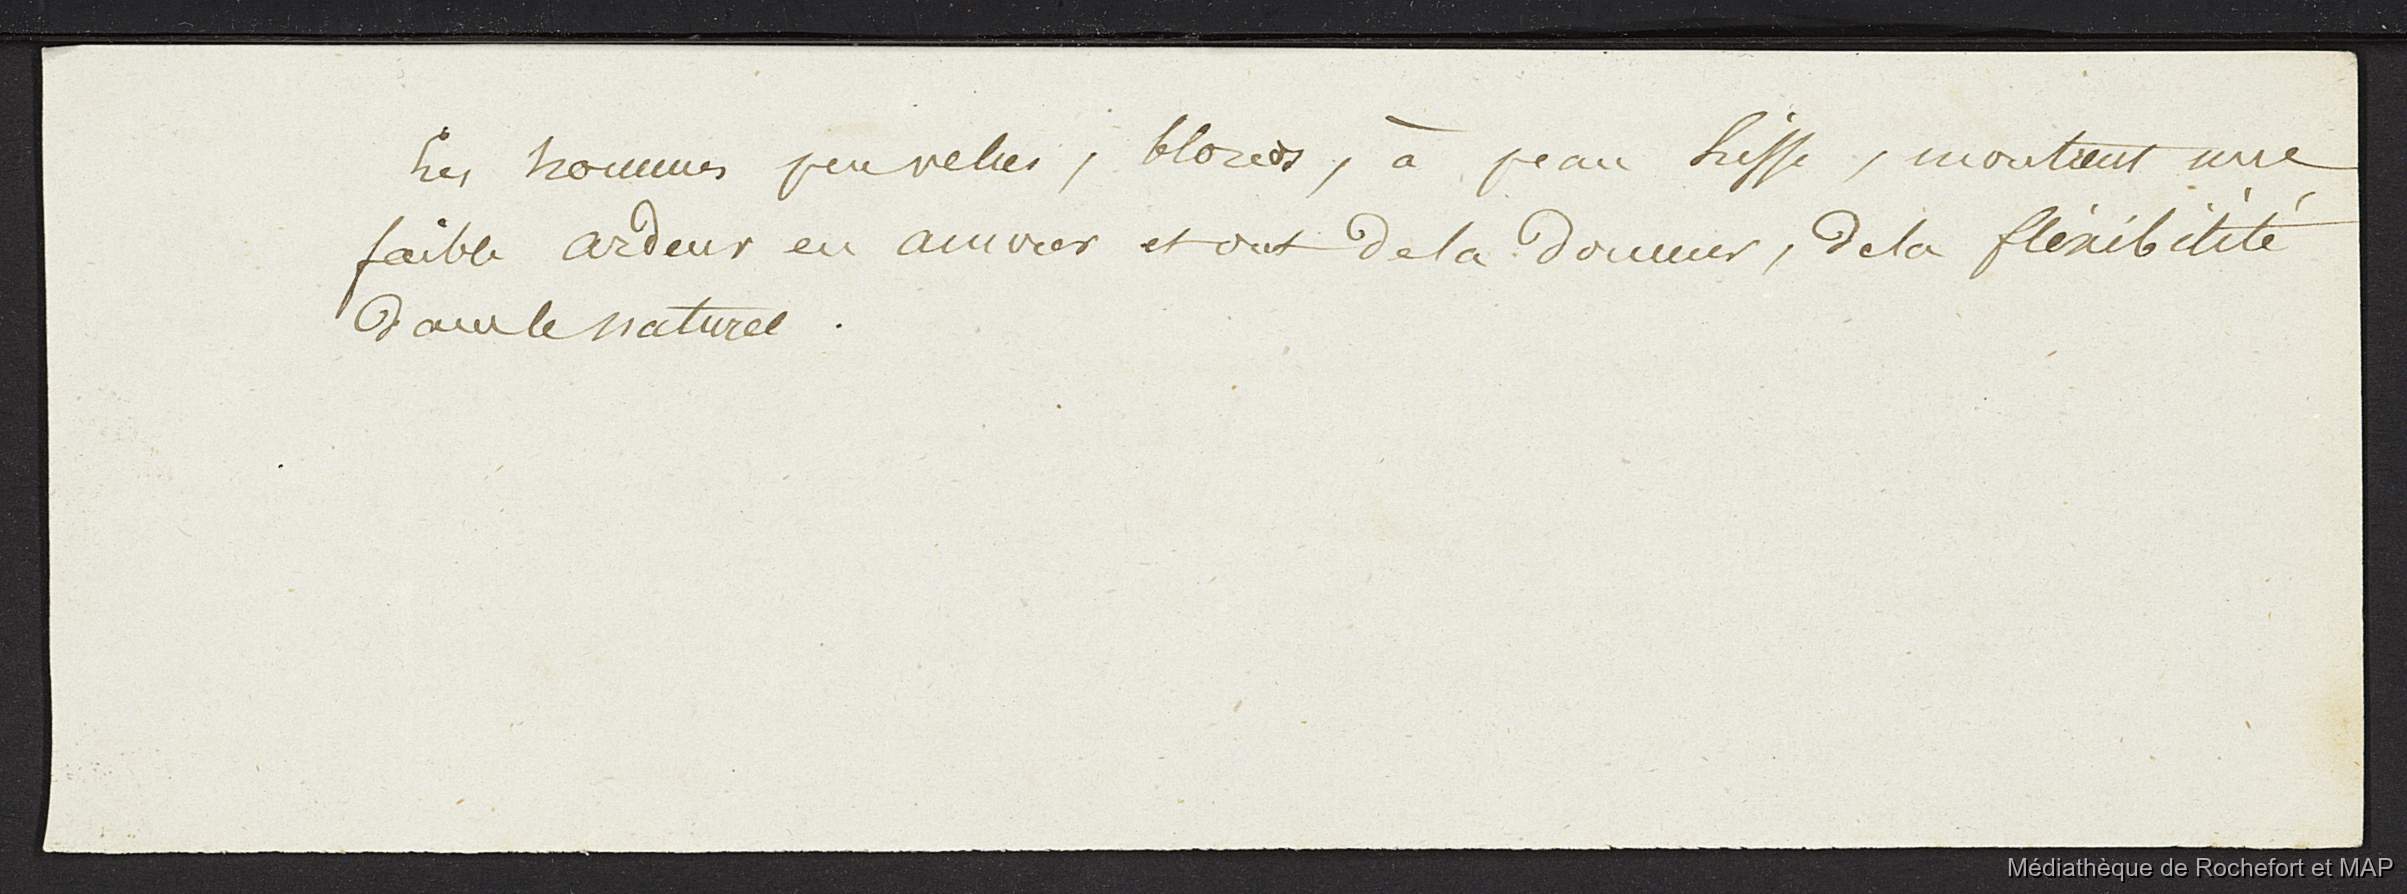 Les hommes peu velus, blonds, à peau lisse, montrent une
faible ardeur en amour et ont de la douceur, de la fléxibilité
dans le naturel.
Médiathèque de Rochefort et MAP